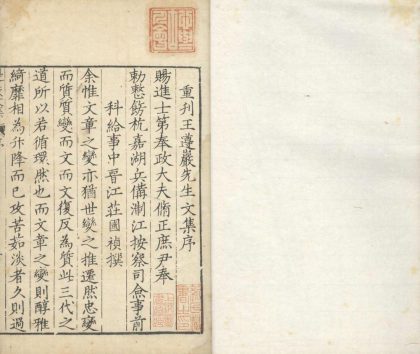 重刊王遵巖先生文集序
賜進士第奉政大夫脩正庶尹奉
勑整飭杭嘉湖兵備淛江按察司僉事前
科給事中晉江莊國禎撰
余惟文章之變亦猶世變之推遷然忠變
而質質變而文而文復反為質此三代之
道所以若循環然也而文章之變則醇雅
綺靡相為升降而已攻苦茹淡者久則過